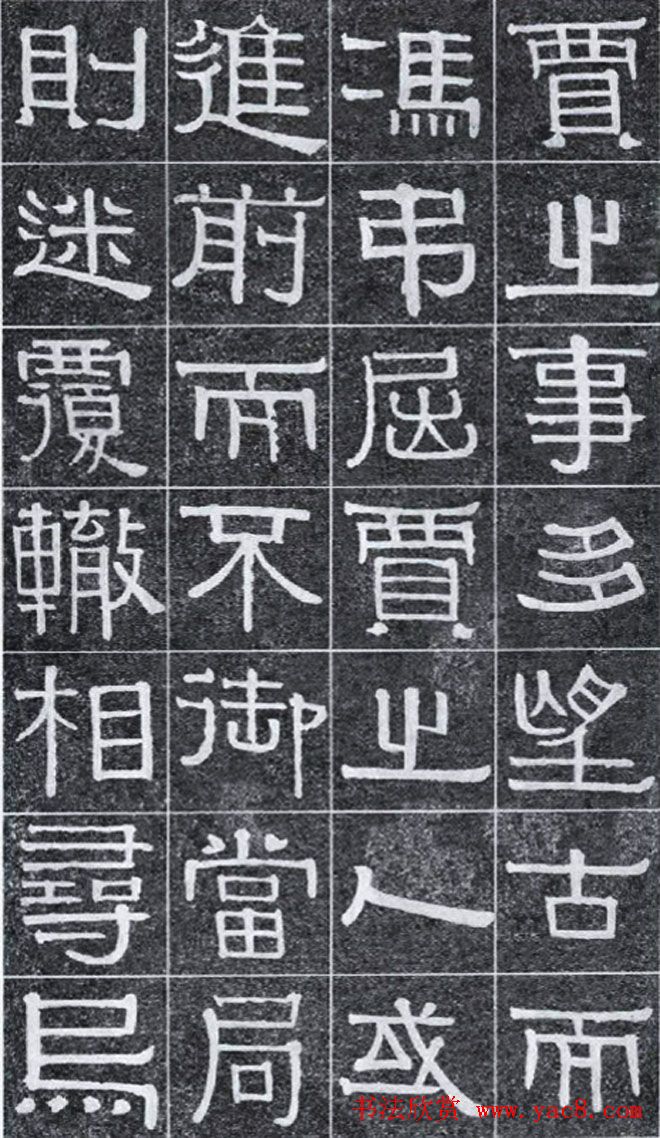 賈之事多望古而
馮弔屈賈之人或
進前而不御當局
則迷覆轍相尋烏
书法欣赏 www.yac8.com